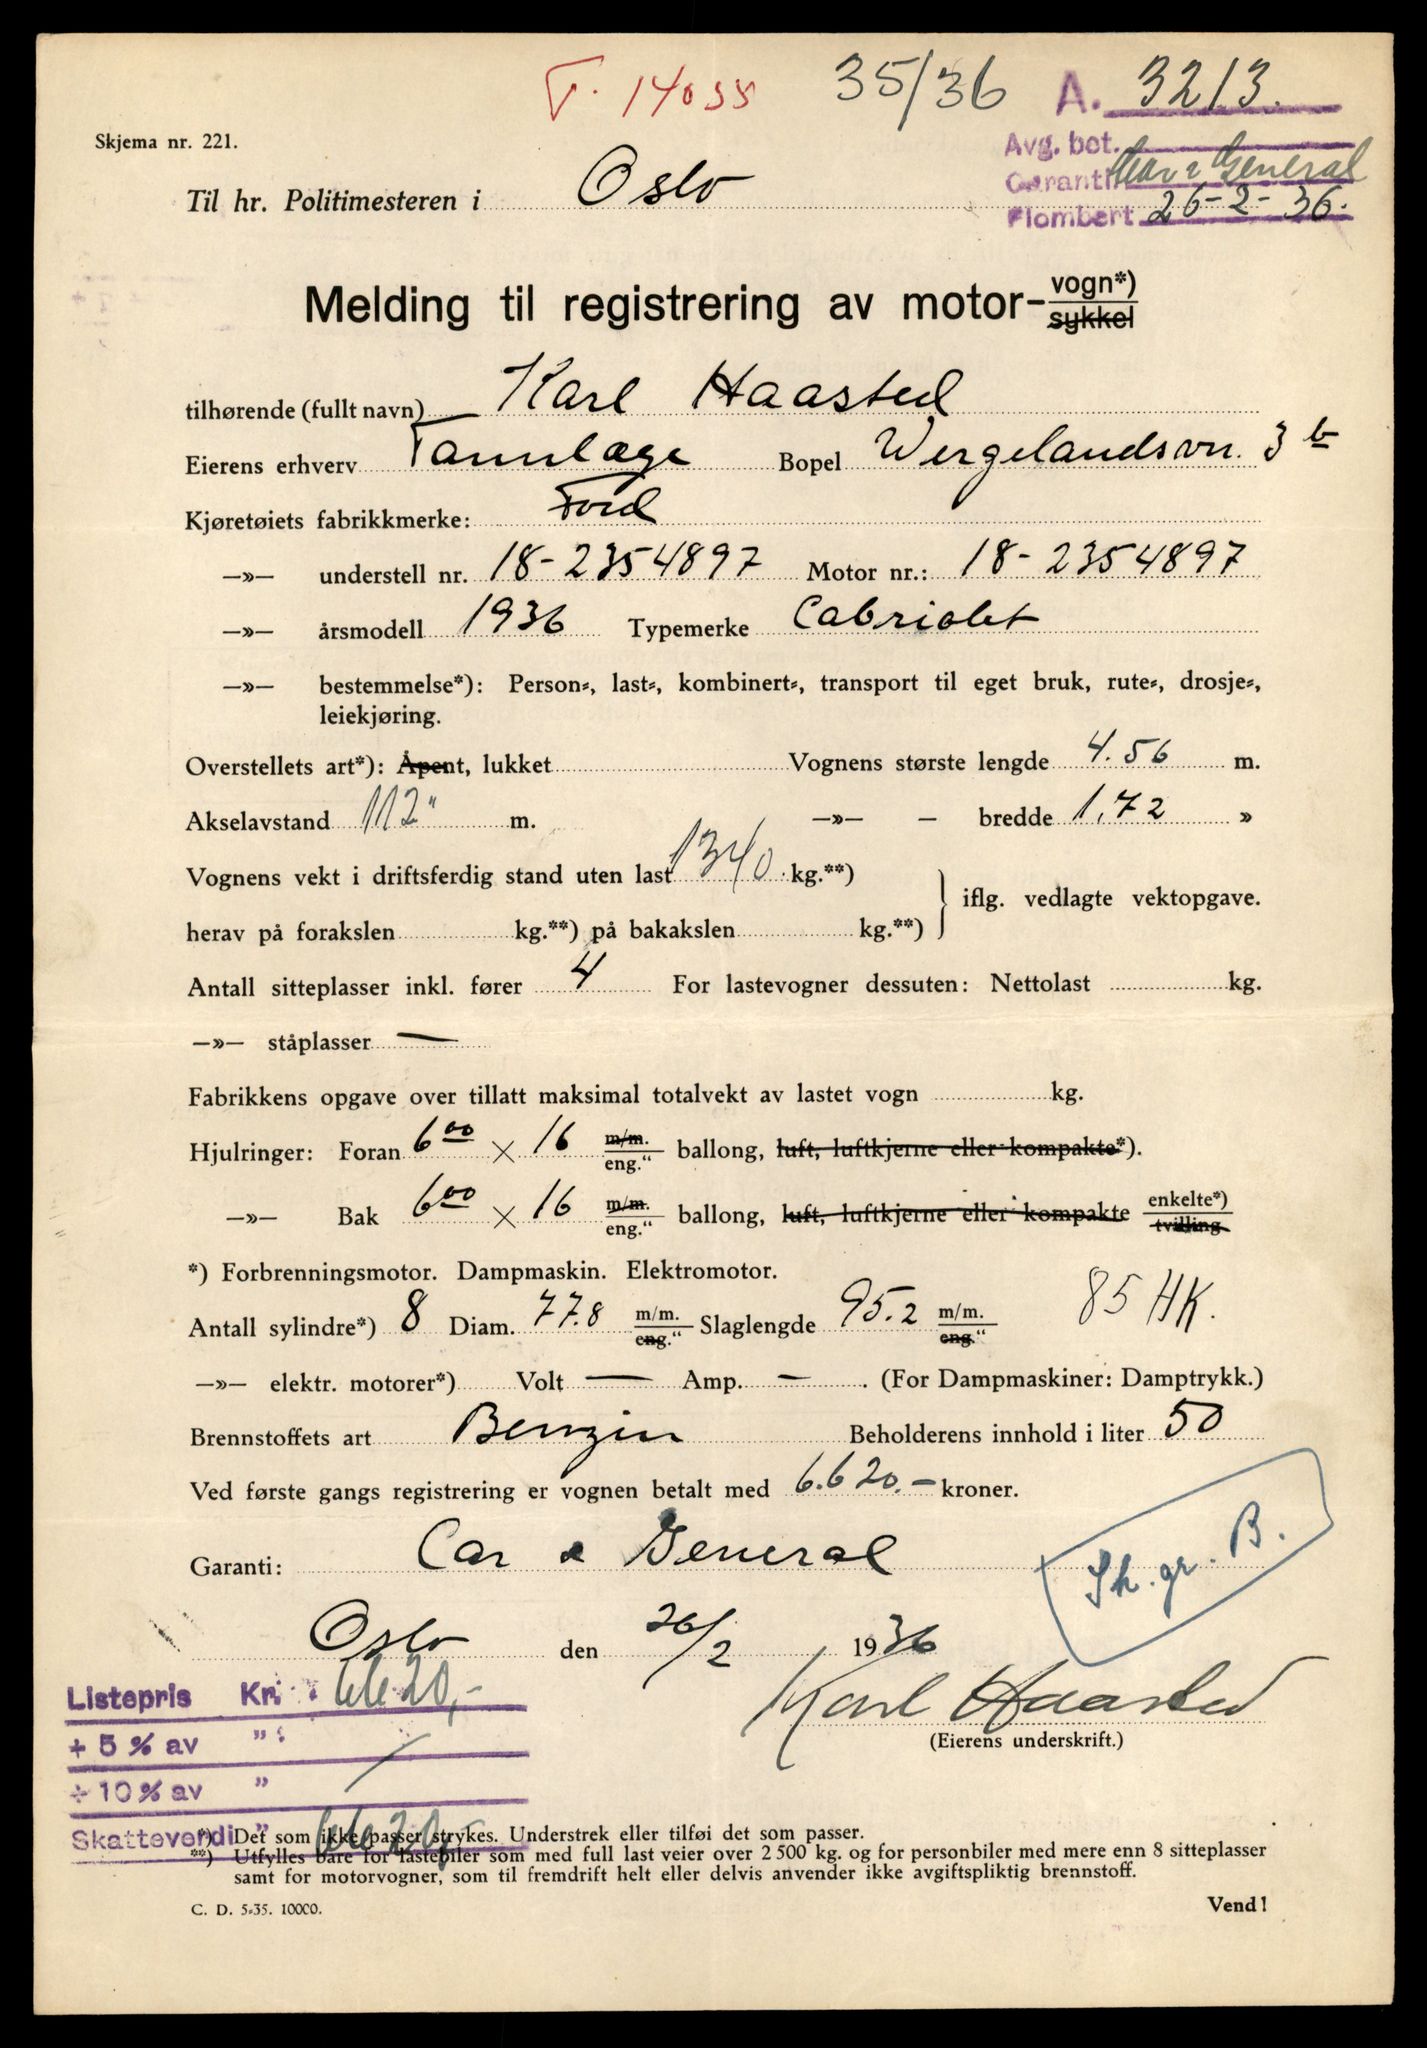 T. 14055 35/36 A. 3213.
Skjema nr. 221.
Avg. bet.
Garanti Car & General
Plombert 26-2-36.
Til hr. Politimesteren i Oslo
Melding til registrering av motor-vogn*)
sykkel
tilhørende (fullt navn) Karl Haasted
Eierens erhverv Tannlæge Bopel Wergelandsvn. 3 b
Kjøretøiets fabrikkmerke: Ford
—»— understell nr. 18-2354897 Motor nr.: 18-2354897
—»— årsmodell 1936 Typemerke Cabriolet
—»— bestemmelse*): Person-, last-, kombinert-, transport til eget bruk, rute-, drosje-,
leiekjøring.
Overstellets art*): Åpent, lukket Vognens største lengde 4.56 m.
Akselavstand 112" m. —»— — bredde 1,72 »
Vognens vekt i driftsferdig stand uten last 1340 kg.**)
iflg. vedlagte vektopgave.
herav på forakslen kg.**) på bakakslen kg.**)
Antall sitteplasser inkl. fører 4 For lastevogner dessuten: Nettolast kg.
—»— ståplasser —
Fabrikkens opgave over tillatt maksimal totalvekt av lastet vogn kg.
Hjulringer: Foran 6⁰⁰ × 16 m/m. eng." ballong, luft, luftkjerne eller kompakte*).
—»— Bak 6⁰⁰ × 16 m/m. eng." ballong, luft, luftkjerne eller kompakte enkelte*) tvilling
*) Forbrenningsmotor. Dampmaskin. Elektromotor.
Antall sylindre*) 8 Diam. 77.8 m/m. eng." Slaglengde 95.2 m/m. eng." 85 HK.
—»— elektr. motorer*) Volt — Amp. — . (For Dampmaskiner: Damptrykk.)
Brennstoffets art Benzin Beholderens innhold i liter 50
Ved første gangs registrering er vognen betalt med 6.620.— kroner.
Garanti: Car & General
Sk. gr. B.
Oslo den 26/2 1936
Listepris Kr. 6620,-
Karl Haasted
÷ 5 % av "
(Eierens underskrift.)
÷ 10 % av "
Skatteverdi " 6620,-
*) Det som ikke passer strykes. Understrek eller tilføi det som passer.
**) Utfylles bare for lastebiler som med full last veier over 2 500 kg. og for personbiler med mere enn 8 sitteplasser
samt for motorvogner, som til fremdrift helt eller delvis anvender ikke avgiftspliktig brennstoff.
C. D. 5-35. 10000. Vend!